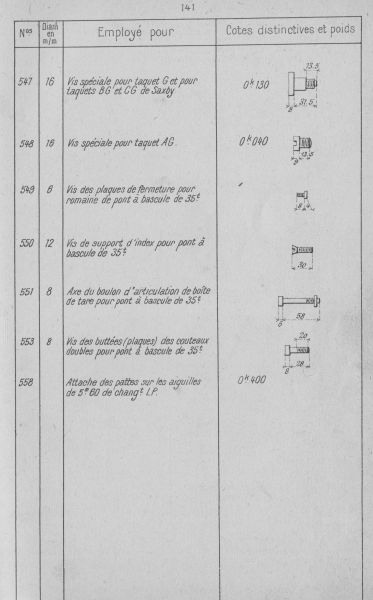 141
Nos Diam en m/m Employé pour Cotes distinctives et poids
547 16 Vis spéciale pour taquet G et pour 0k130 13.5
taquets BG et CG de Saxby 8 51.5
548 16 Vis spéciale pour taquet AG. 0k.040
9 13.5
549 6 Vis des plaques de fermeture pour
romaine de pont à bascule de 35t 8 4
550 12 Vis de support d'index pour pont à
bascule de 35t. 30
551 8 Axe du boulon d'articulation de boîte
de tare pour pont à bascule de 35t 6 58
553 8 Vis des buttées (plaques) des couteaux 20
doubles pour pont à bascule de 35t 8 28
558 Attache des pattes sur les aiguilles 0k400
de 5m60 de changt I.P.